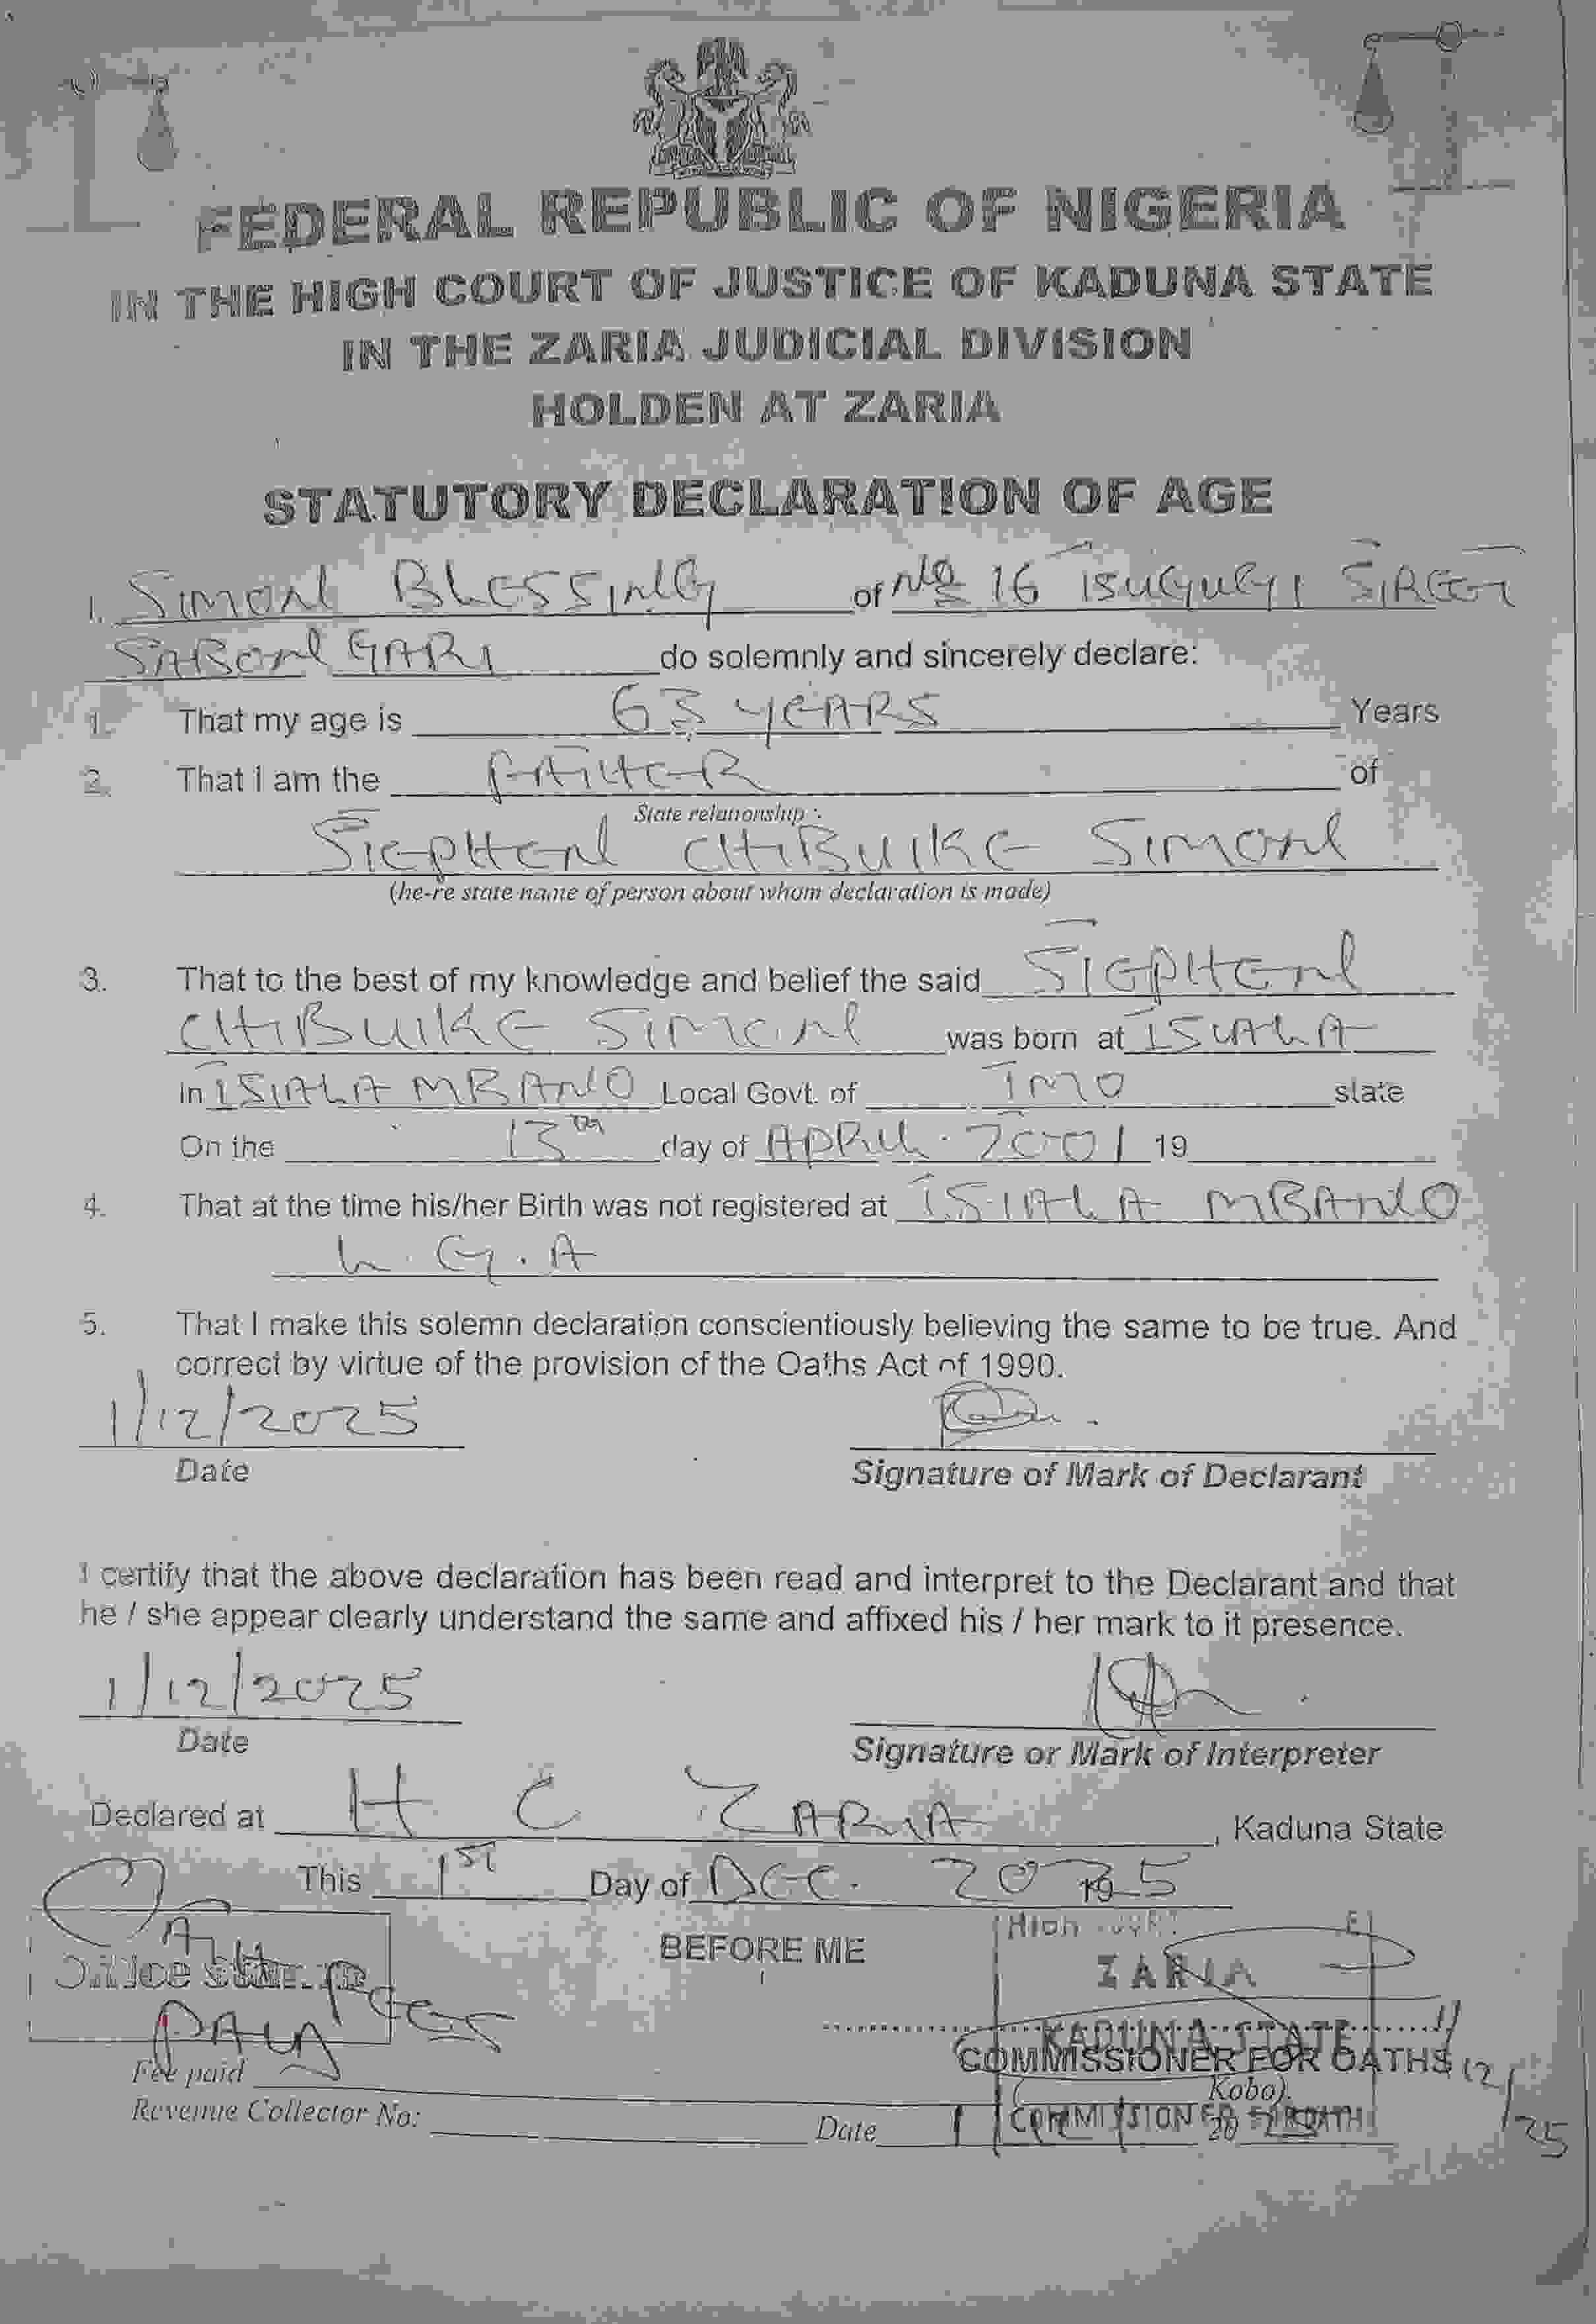 FEDERAL REPUBLIC OF NIGERIA
IN THE HIGH COURT OF JUSTICE OF KADUNA STATE
IN THE ZARIA JUDICIAL DIVISION
HOLDEN AT ZARIA
STATUTORY DECLARATION OF AGE
I. SIMON BLESSING of No 16 STREET
SABON GARI do solemnly and sincerely declare:
1. That my age is 63 YEARS Years
2. That I am the FATHER of
State relationship
STEPHEN CHIBUIKE SIMON
(he-re state name of person about whom declaration is made)
3. That to the best of my knowledge and belief the said STEPHEN
CHIBUIKE SIMON was born at ISIALA
in ISIALA MBANO Local Govt. of IMO state
On the 13th day of APRIL. 2001 19
4. That at the time his/her Birth was not registered at ISIALA MBANO
L.G.A
5. That I make this solemn declaration conscientiously believing the same to be true. And
correct by virtue of the provision of the Oaths Act of 1990.
1/12/2025
Date
Signature of Mark of Declarant
I certify that the above declaration has been read and interpret to the Declarant and that
he / she appear clearly understand the same and affixed his / her mark to it presence.
1/12/2025
Date
Signature or Mark of Interpreter
Declared at H C ZARIA, Kaduna State
This 1ST Day of DEC. 2025 19
BEFORE ME
HIGH COURT
ZARIA
KADUNA STATE
COMMISSIONER FOR OATHS
1/12/25
PAUL
Fee paid
Kobo).
Revenue Collector No: Date 20
COMMISSIONER FOR OATH